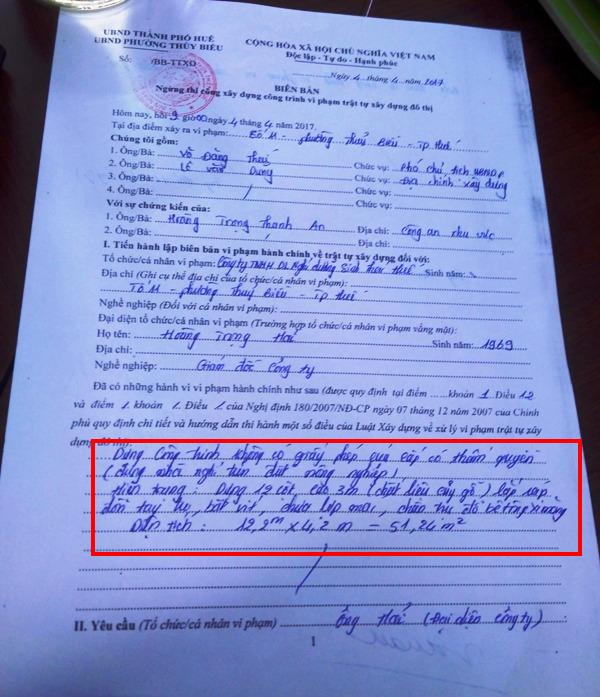 UBND THÀNH PHỐ HUẾ
UBND PHƯỜNG THỦY BIỀU
CỘNG HÒA XÃ HỘI CHỦ NGHĨA VIỆT NAM
Độc lập - Tự do - Hạnh phúc
Số: /BB-TTXD
Ngày 4 tháng 4 năm 2017
BIÊN BẢN
Ngừng thi công xây dựng công trình vi phạm trật tự xây dựng đô thị
Hôm nay, hồi 9 giờ 00 ngày 4 tháng 4 năm 2017.
Tại địa điểm xảy ra vi phạm: - phường Thuỷ Biều - TP Huế
Chúng tôi gồm:
1. Ông/Bà: Võ Đăng Chức vụ: Phó chủ tịch UBND P
2. Ông/Bà: Lê Văn Dung Chức vụ: Địa chính xây dựng
3. Ông/Bà: Chức vụ:
4. Ông/Bà: / Chức vụ:
Với sự chứng kiến của:
1. Ông/Bà: Hoàng Trọng Thanh An Địa chỉ: Công an khu vực
2. Ông/Bà: / Địa chỉ:
I. Tiến hành lập biên bản vi phạm hành chính về trật tự xây dựng đối với:
Tổ chức/cá nhân vi phạm: Công ty TNHH DL Nghỉ dưỡng Sinh thái Huế Sinh năm:
Địa chỉ (Ghi cụ thể địa chỉ của tổ chức/cá nhân vi phạm):
- phường Thuỷ Biều - TP Huế
Nghề nghiệp (Đối với cá nhân vi phạm):
Đại diện tổ chức/cá nhân vi phạm (Trường hợp tổ chức/cá nhân vi phạm vắng mặt):
Họ tên: Hoàng Trọng Sinh năm: 1969
Địa chỉ:
Nghề nghiệp: Giám đốc Công ty
Đã có những hành vi vi phạm hành chính như sau (được quy định tại điểm ......khoản 1 Điều 12
và điểm 1. khoản 1. Điều 1. của Nghị định 180/2007/NĐ-CP ngày 07 tháng 12 năm 2007 của Chính
phủ quy định chi tiết và hướng dẫn thi hành một số điều của Luật Xây dựng về xử lý vi phạm trật tự xây
dựng đô thị):
Dựng công trình không có giấy phép của cấp có thẩm quyền
(dựng nhà nghỉ trên đất nông nghiệp)
Hiện trạng: Dựng 12 cột, cao 3m (chất liệu của gỗ) lắp ráp,
đòn tay, bắt vít, chưa lợp mái, chân trụ đổ bê tông xi măng
Diện tích: 12,2m x 4,2 m = 51,24 m²
/
II. Yêu cầu (Tổ chức/cá nhân vi phạm) (Đại diện công ty)
1